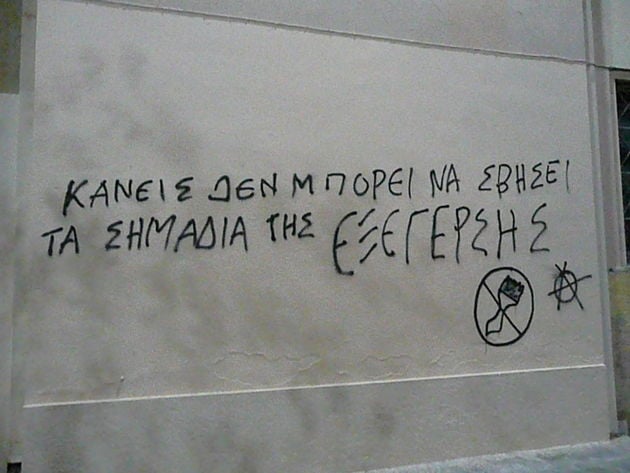 ΚΑΝΕΙΣ ΔΕΝ ΜΠΟΡΕΙ ΝΑ ΣΒΗΣΕΙ
ΤΑ ΣΗΜΑΔΙΑ ΤΗΣ ΕΞΕΓΕΡΣΗΣ